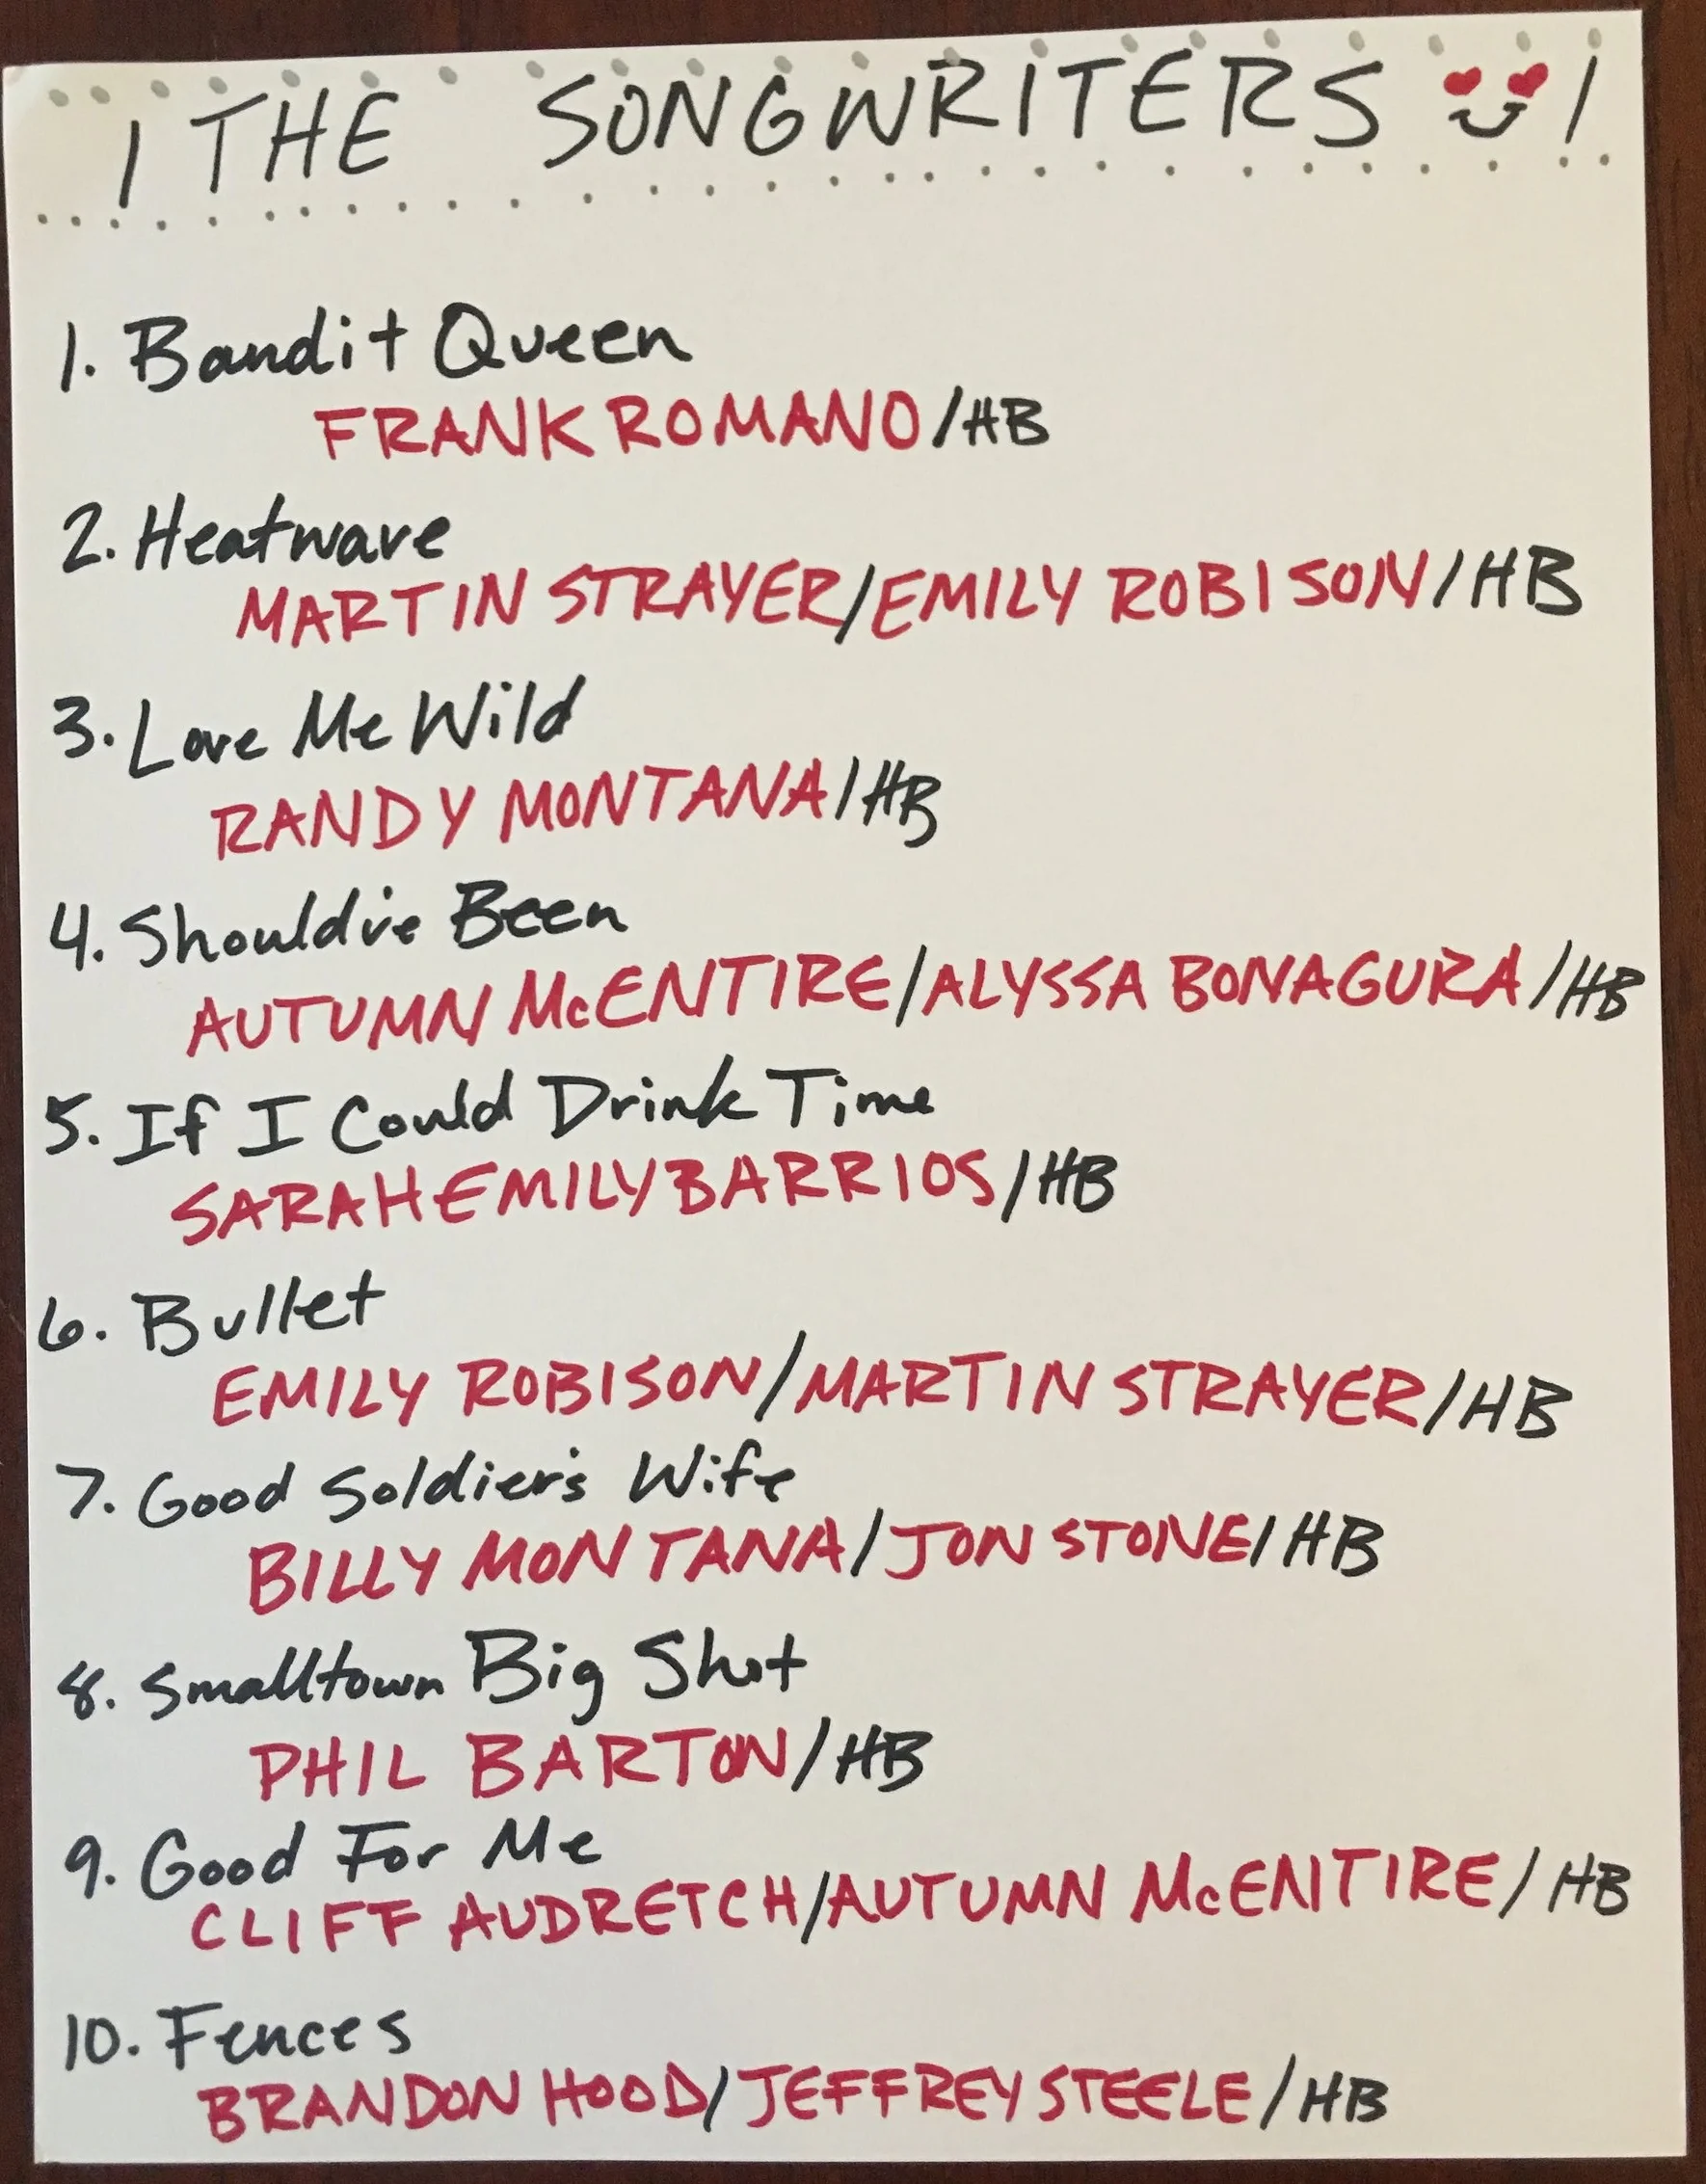 THE SONGWRITERS
1. Bandit Queen
FRANK ROMANO/HB
2. Heatwave
MARTIN STRAYER/EMILY ROBISON/HB
3. Love Me Wild
RANDY MONTANA/HB
4. Should've Been
AUTUMN McENTIRE/ALYSSA BONAGURA/HB
5. If I Could Drink Time
SARAH EMILY BARRIOS/HB
6. Bullet
EMILY ROBISON/MARTIN STRAYER/HB
7. Good Soldier's Wife
BILLY MONTANA/JON STONE/HB
8. Smalltown Big Shot
PHIL BARTON/HB
9. Good For Me
CLIFF AUDRETCH/AUTUMN McENTIRE/HB
10. Fences
BRANDON HOOD/JEFFREY STEELE/HB